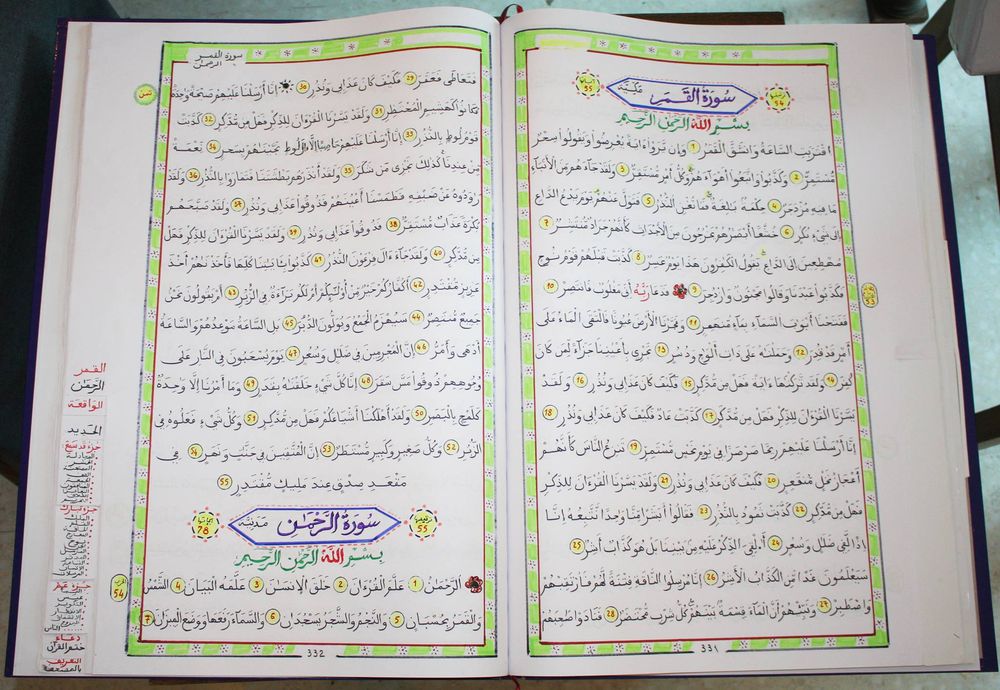 ترتيبها 54 سورة القمر مكية آياتها 55
بسم الله الرحمن الرحيم
اقتربت الساعة وانشق القمر 1 وإن يروا ءاية يعرضوا ويقولوا سحر
مستمر 2 وكذبوا واتبعوا أهواءهم وكل أمر مستقر 3 ولقد جاءهم من الأنباء
ما فيه مزدجر 4 حكمة بالغة فما تغن النذر 5 فتول عنهم يوم يدع الداع
إلى شيء نكر 6 خشعا أبصرهم يخرجون من الأجداث كأنهم جراد منتشر 7
مهطعين إلى الداع يقول الكفرون هذا يوم عسر 8 كذبت قبلهم قوم نوح
فكذبوا عبدنا وقالوا مجنون وازدجر 9 فدعا ربه أني مغلوب فانتصر 10
ففتحنا أبوب السماء بماء منهمر 11 وفجرنا الأرض عيونا فالتقى الماء على
أمر قد قدر 12 وحملنه على ذات ألوح ودسر 13 تجري بأعيننا جزاء لمن كان
كفر 14 ولقد تركنها ءاية فهل من مدكر 15 فكيف كان عذابي ونذر 16 ولقد
يسرنا القرءان للذكر فهل من مدكر 17 كذبت عاد فكيف كان عذابي ونذر 18
إنا أرسلنا عليهم ريحا صرصرا في يوم نحس مستمر 19 تنزع الناس كأنهم
أعجاز نخل منقعر 20 فكيف كان عذابي ونذر 21 ولقد يسرنا القرءان للذكر
فهل من مدكر 22 كذبت ثمود بالنذر 23 فقالوا أبشرا منا وحدا نتبعه إنا
إذا لفي ضلل وسعر 24 أءلقي الذكر عليه من بيننا بل هو كذاب أشر 25
سيعلمون غدا من الكذاب الأشر 26 إنا مرسلوا الناقة فتنة لهم فارتقبهم
واصطبر 27 ونبئهم أن الماء قسمة بينهم كل شرب محتضر 28 فنادوا صاحبهم
331
سورة القمر
الرحمن
فتعاطى فعقر 29 فكيف كان عذابي ونذر 30 إنا أرسلنا عليهم صيحة وحدة
فكانوا كهشيم المحتظر 31 ولقد يسرنا القرءان للذكر فهل من مدكر 32 كذبت
قوم لوط بالنذر 33 إنا أرسلنا عليهم حاصبا إلا ءال لوط نجينهم بسحر 34 نعمة
من عندنا كذلك نجزي من شكر 35 ولقد أنذرهم بطشتنا فتماروا بالنذر 36 ولقد
راودوه عن ضيفه فطمسنا أعينهم فذوقوا عذابي ونذر 37 ولقد صبحهم
بكرة عذاب مستقر 38 فذوقوا عذابي ونذر 39 ولقد يسرنا القرءان للذكر فهل
من مدكر 40 ولقد جاء ءال فرعون النذر 41 كذبوا بئايتنا كلها فأخذنهم أخذ
عزيز مقتدر 42 أكفاركم خير من أولئكم أم لكم براءة في الزبر 43 أم يقولون نحن
جميع منتصر 44 سيهزم الجمع ويولون الدبر 45 بل الساعة موعدهم والساعة
أدهى وأمر 46 إن المجرمين في ضلل وسعر 47 يوم يسحبون في النار على
وجوههم ذوقوا مس سقر 48 إنا كل شيء خلقنه بقدر 49 وما أمرنا إلا وحدة
كلمح بالبصر 50 ولقد أهلكنا أشياعكم فهل من مدكر 51 وكل شيء فعلوه في
الزبر 52 وكل صغير وكبير مستطر 53 إن المتقين في جنت ونهر 54 في
مقعد صدق عند مليك مقتدر 55
ترتيبها 55 سورة الرحمن مدنية آياتها 78
بسم الله الرحمن الرحيم
الرحمن 1 علم القرءان 2 خلق الإنسن 3 علمه البيان 4 الشمس
والقمر بحسبان 5 والنجم والشجر يسجدان 6 والسماء رفعها ووضع الميزان 7
332
ثمن
حزب 54
القمر
الرحمن
الواقعة
الحديد
جزء قد سمع
جزء تبارك
جزء عم
دعاء
ختم القرآن
التعريف
بالمصحف